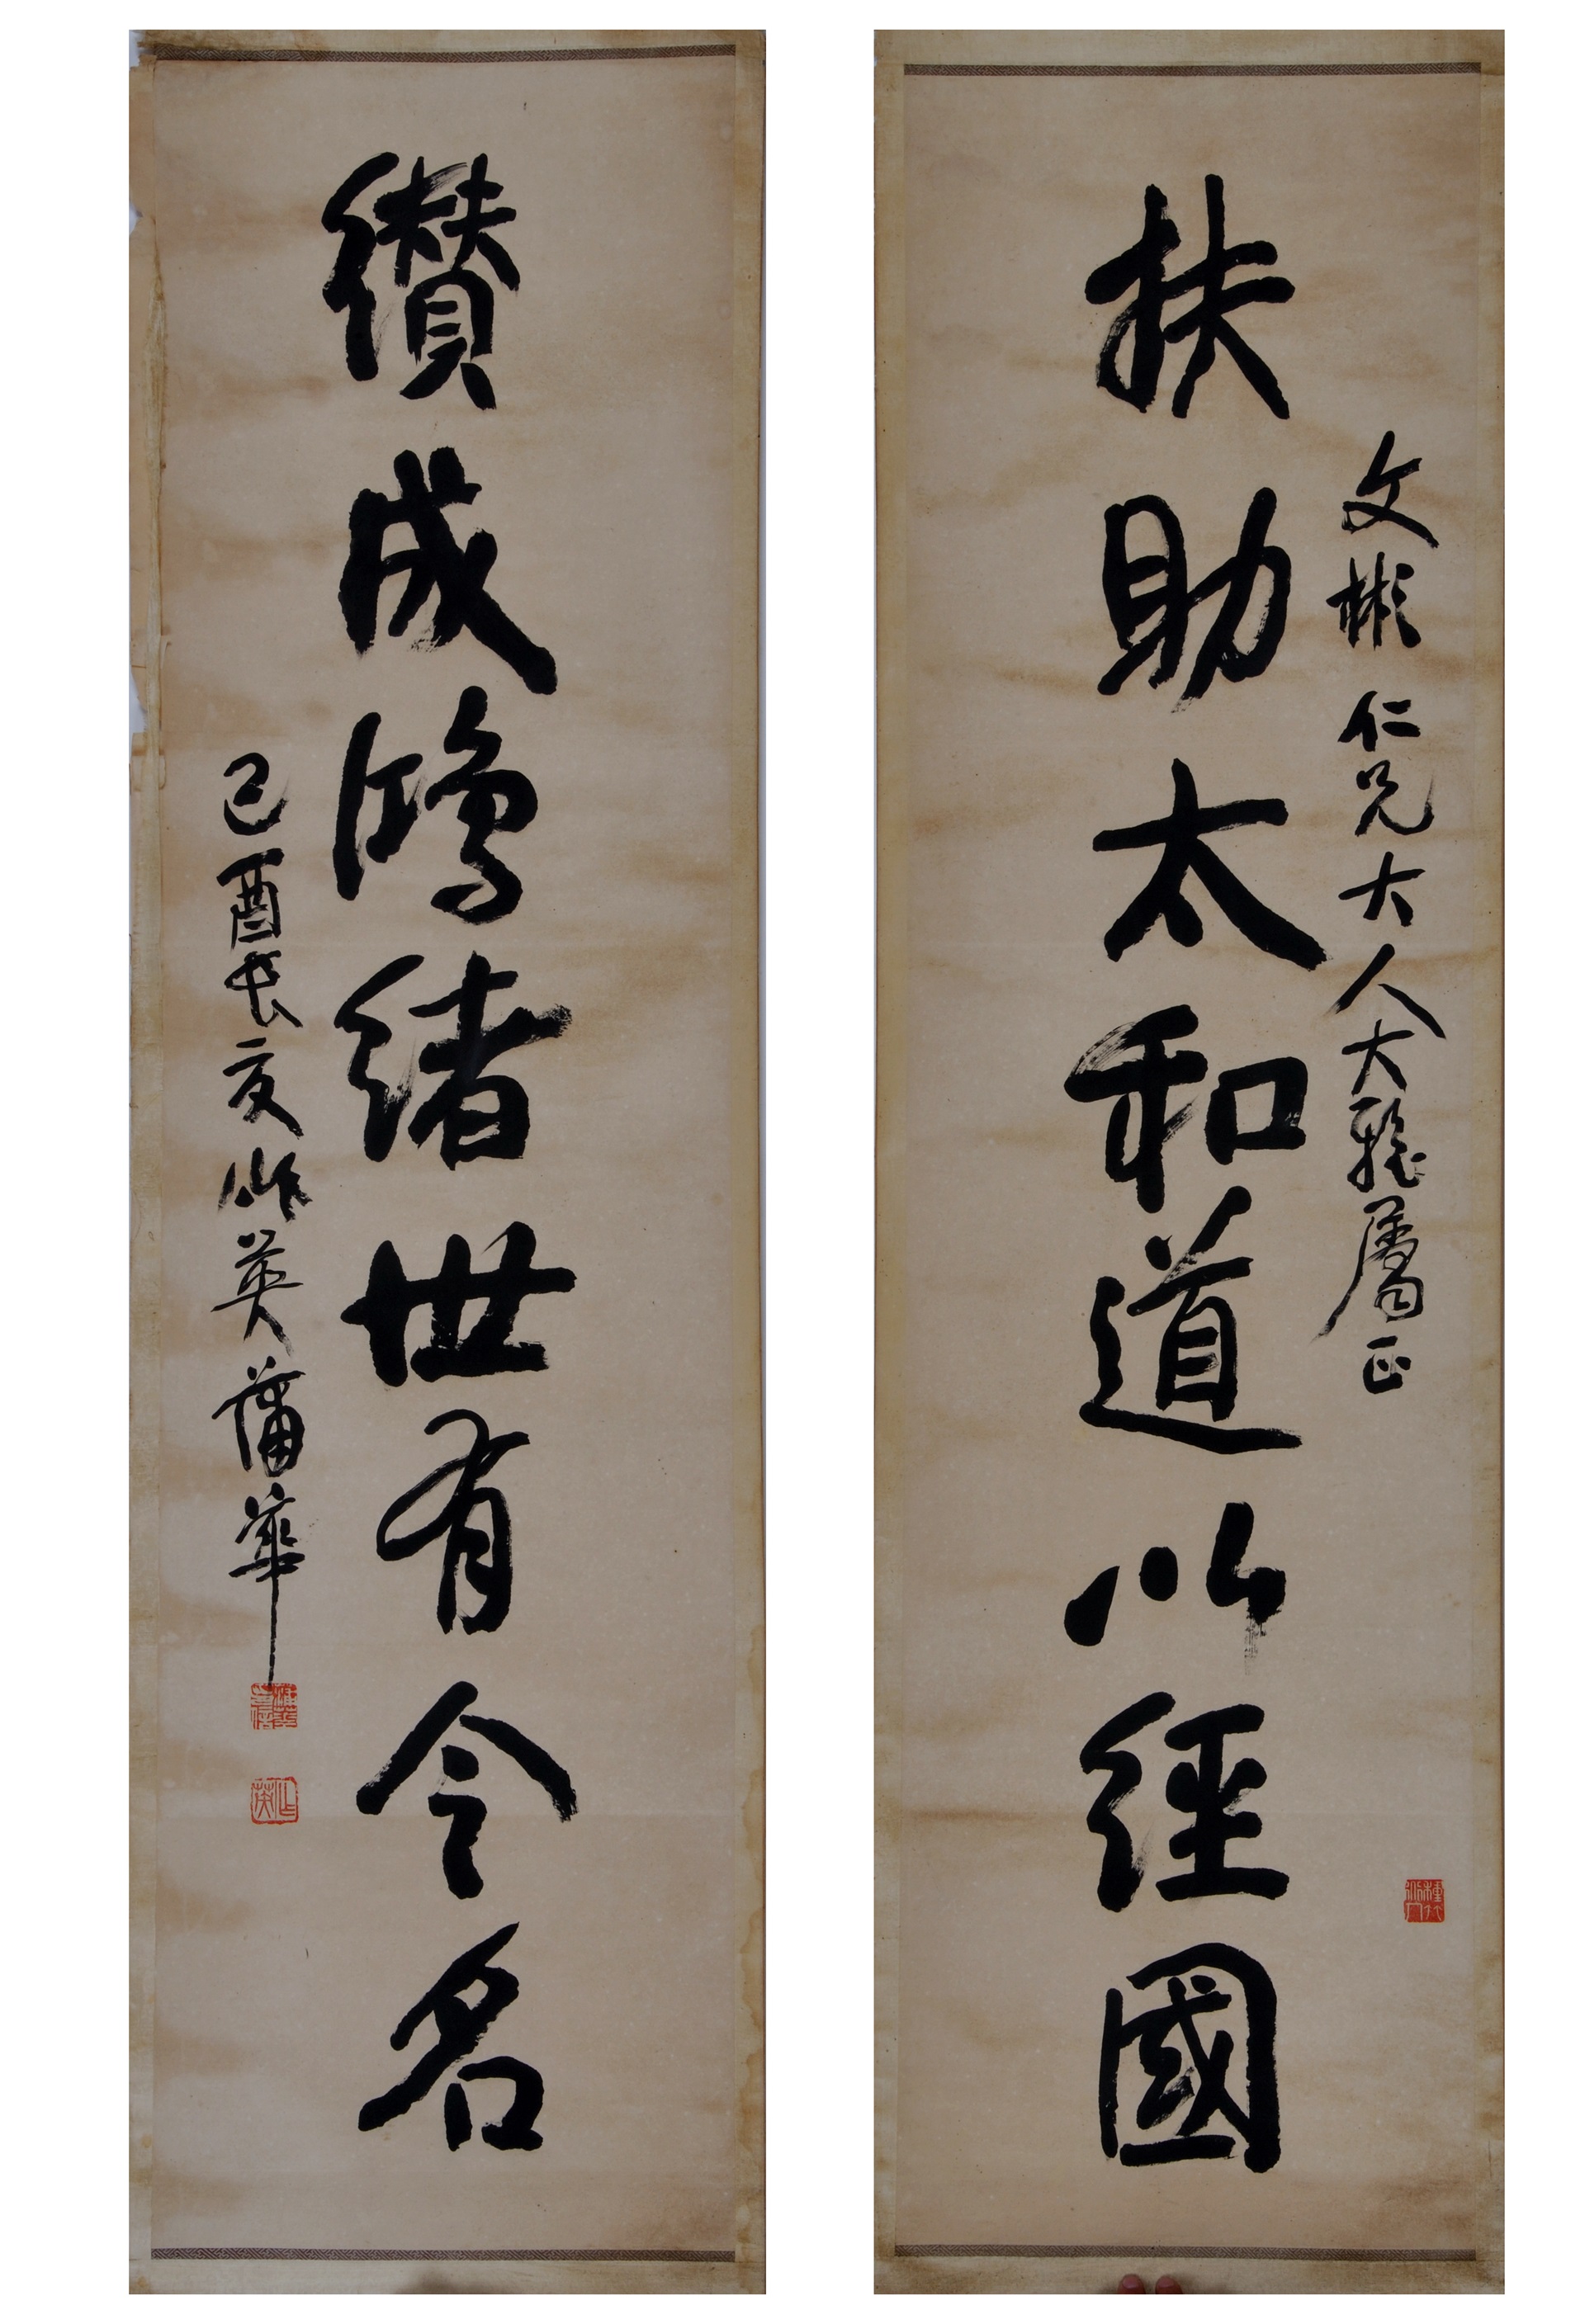 文彬仁兄大人大雅属正
扶助太和道以經國
纘成鴻緒世有令名
己酉長夏作英蒲華
作英